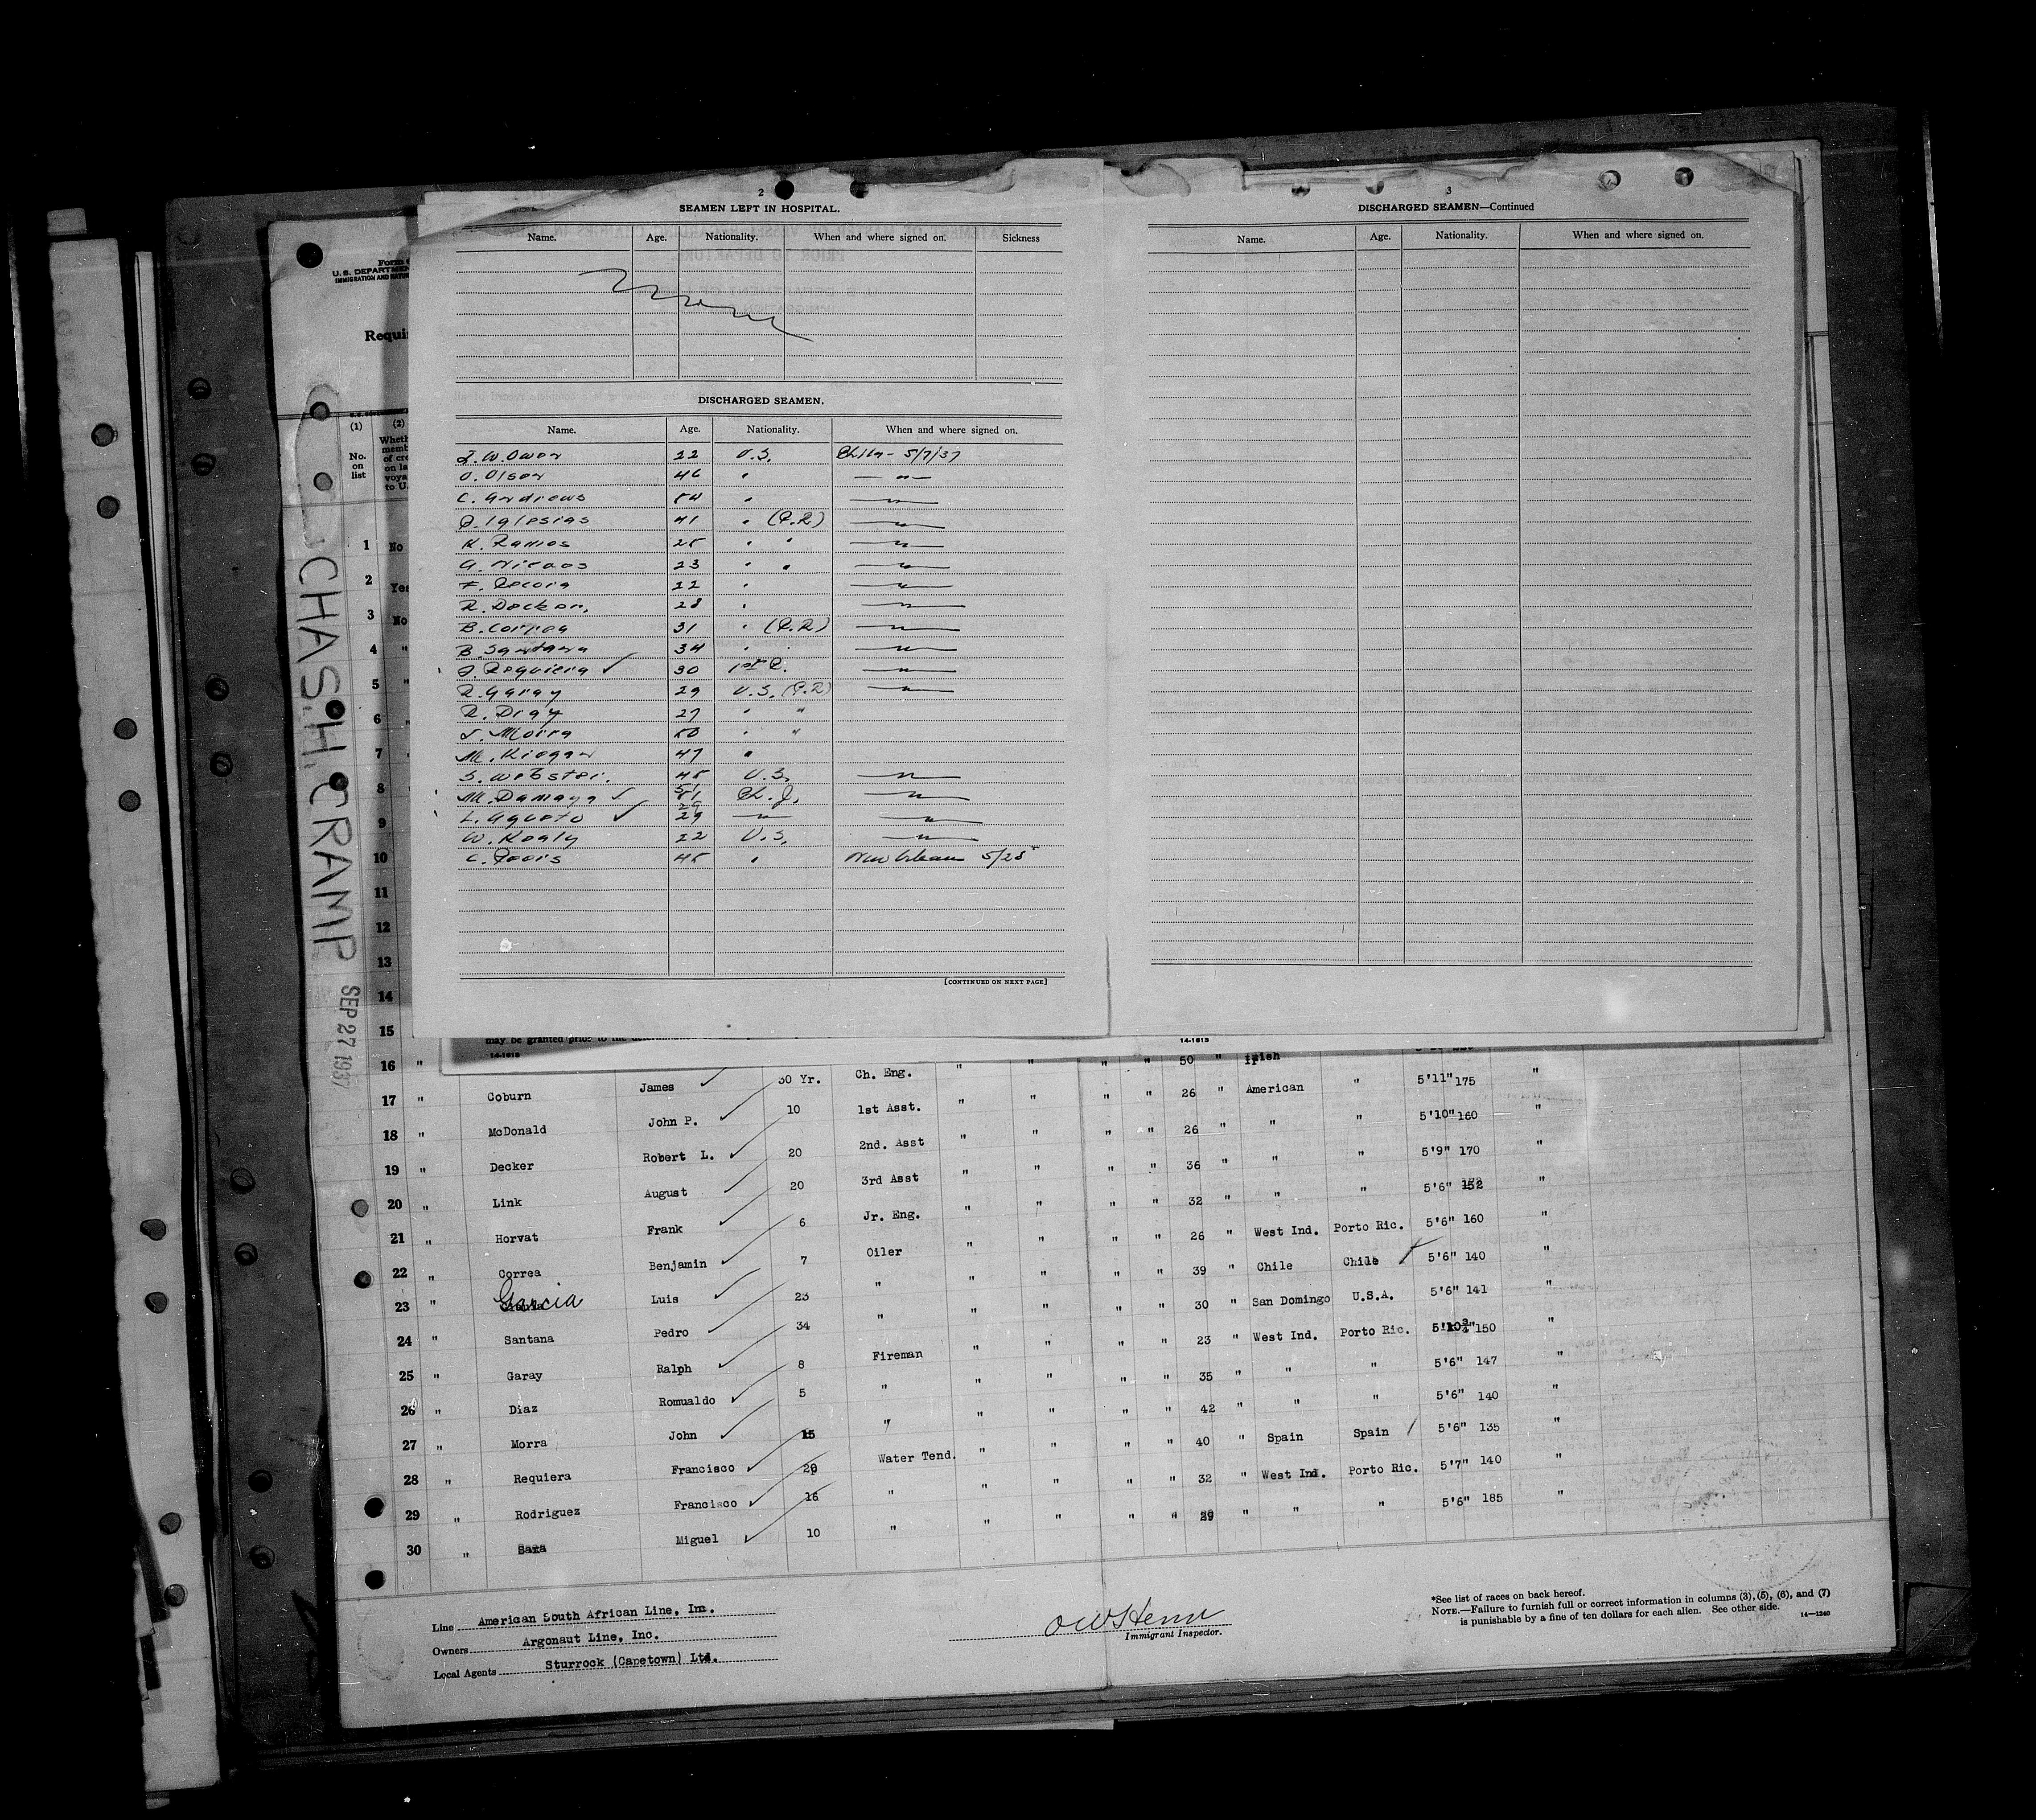 2
SEAMEN LEFT IN HOSPITAL.
Name. Age. Nationality. When and where signed on. Sickness
None
DISCHARGED SEAMEN.
Name. Age. Nationality. When and where signed on.
22 U.S. Phila- 5/7/37
O. Olsen 46 " — " —
C. Andrews 54 " — " —
Iglesias 41 " (P.R) — " —
Ramos 25 " " — " —
23 " " — " —
22 " — " —
R. Decker. 28 " — " —
B. Correa 31 " (P.R) — " —
Santana 34 " — " —
Requiera ✓ 30 1st P. — " —
R. Garay 29 U.S. (P.R) — " —
R. Diaz 27 " "
J. Morra 50 " "
M. 47 "
S. Webster. 45 U.S. — " —
M. Damaya ✓ 51 — " —
L. Agusto ✓ 29 — " — — " —
W. Kealy 22 U.S. — " —
C. 45 " New Orleans 5/28
[CONTINUED ON NEXT PAGE]
3
DISCHARGED SEAMEN—Continued
Name. Age. Nationality. When and where signed on.
Form
U.S. DEPARTMEN
IMMIGRATION AND NATUR
Requi
(1) (2)
No. on list
Wheth
memb
of cre
on la
voya
to U.
1 No
2 Yes
3 No
4 "
5 "
6 "
7
8
9
10
11
12
13
14
15
CHAS. H. CRAMP SEP 27 1937
may be granted prior to the
14-1613
14-1613
16 " " " " " 50 " Irish
17 " Coburn James ✓ 30 Yr. Ch. Eng. " " " " 26 " American " 5'11" 175 "
18 " McDonald John P. ✓ 10 1st Asst. " " " " 26 " " " 5'10" 160 "
19 " Decker Robert L. ✓ 20 2nd. Asst " " " " 36 " " " 5'9" 170 "
20 " Link August ✓ 20 3rd Asst " " " " 32 " " " 5'6" 152 "
21 " Horvat Frank ✓ 6 Jr. Eng. " " " " 26 " West Ind. Porto Ric. 5'6" 160 "
22 " Correa Benjamin ✓ 7 Oiler " " " " 39 " Chile Chile 5'6" 140 "
23 " Garcia Luis ✓ 23 " " " " " 30 " San Domingo U.S.A. 5'6" 141 "
24 " Santana Pedro ✓ 34 " " " " " 23 " West Ind. Porto Ric. 5'10¾" 150 "
25 " Garay Ralph ✓ 8 Fireman " " " " 35 " " " 5'6" 147 "
26 " Diaz Romualdo ✓ 5 " " " " " 42 " " " 5'6" 140 "
27 " Morra John ✓ 15 " " " " " 40 " Spain Spain 5'6" 135 "
28 " Requiera Francisco ✓ 20 Water Tend. " " " " 32 " West Ind. Porto Ric. 5'7" 140 "
29 " Rodriguez Francisco ✓ 16 " " " " " 29 " " " 5'6" 185 "
30 " Miguel ✓ 10 "
Line American South African Line, Inc.
Owners Argonaut Line, Inc.
Local Agents Sturrock (Capetown) Ltd.
Immigrant Inspector.
*See list of races on back hereof.
NOTE.—Failure to furnish full or correct information in columns (3), (5), (6), and (7)
is punishable by a fine of ten dollars for each alien. See other side. 14—1240